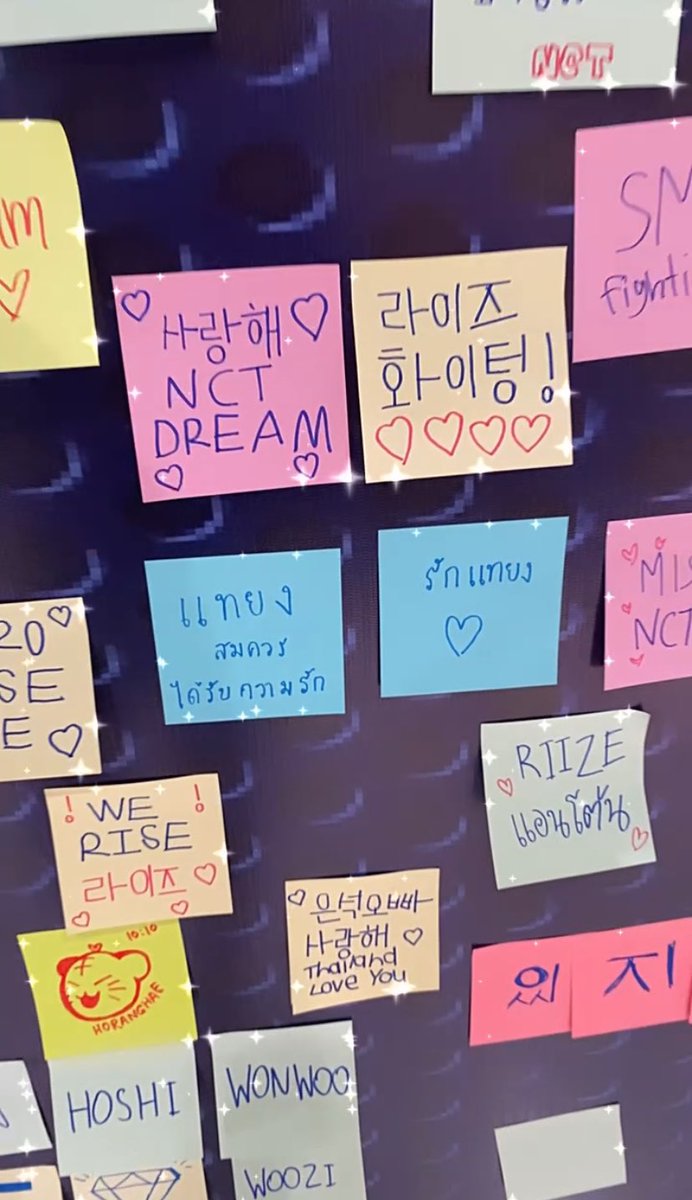 NCT
SM
사랑해
NCT
DREAM
라이즈
화이팅!
แทยง
สมควร
ได้รับความรัก
รักแทยง
NCT
RIIZE
แอนโตน
! WE !
RISE
라이즈
은석오빠
사랑해
Thailand
LOVE YOU
10:10
HORANGHAE
있지
HOSHI
WONWOO
WOOZI